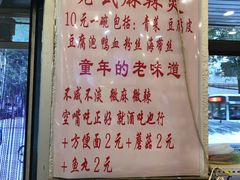 老式麻辣烫
10元一碗包括：青菜 豆腐皮
豆腐泡 鸭血 粉丝 海带丝
童年的老味道
不咸不淡 微麻微辣
空嘴吃正好就酒吃也行
+方便面2元+蘑菇2元
+鱼丸2元